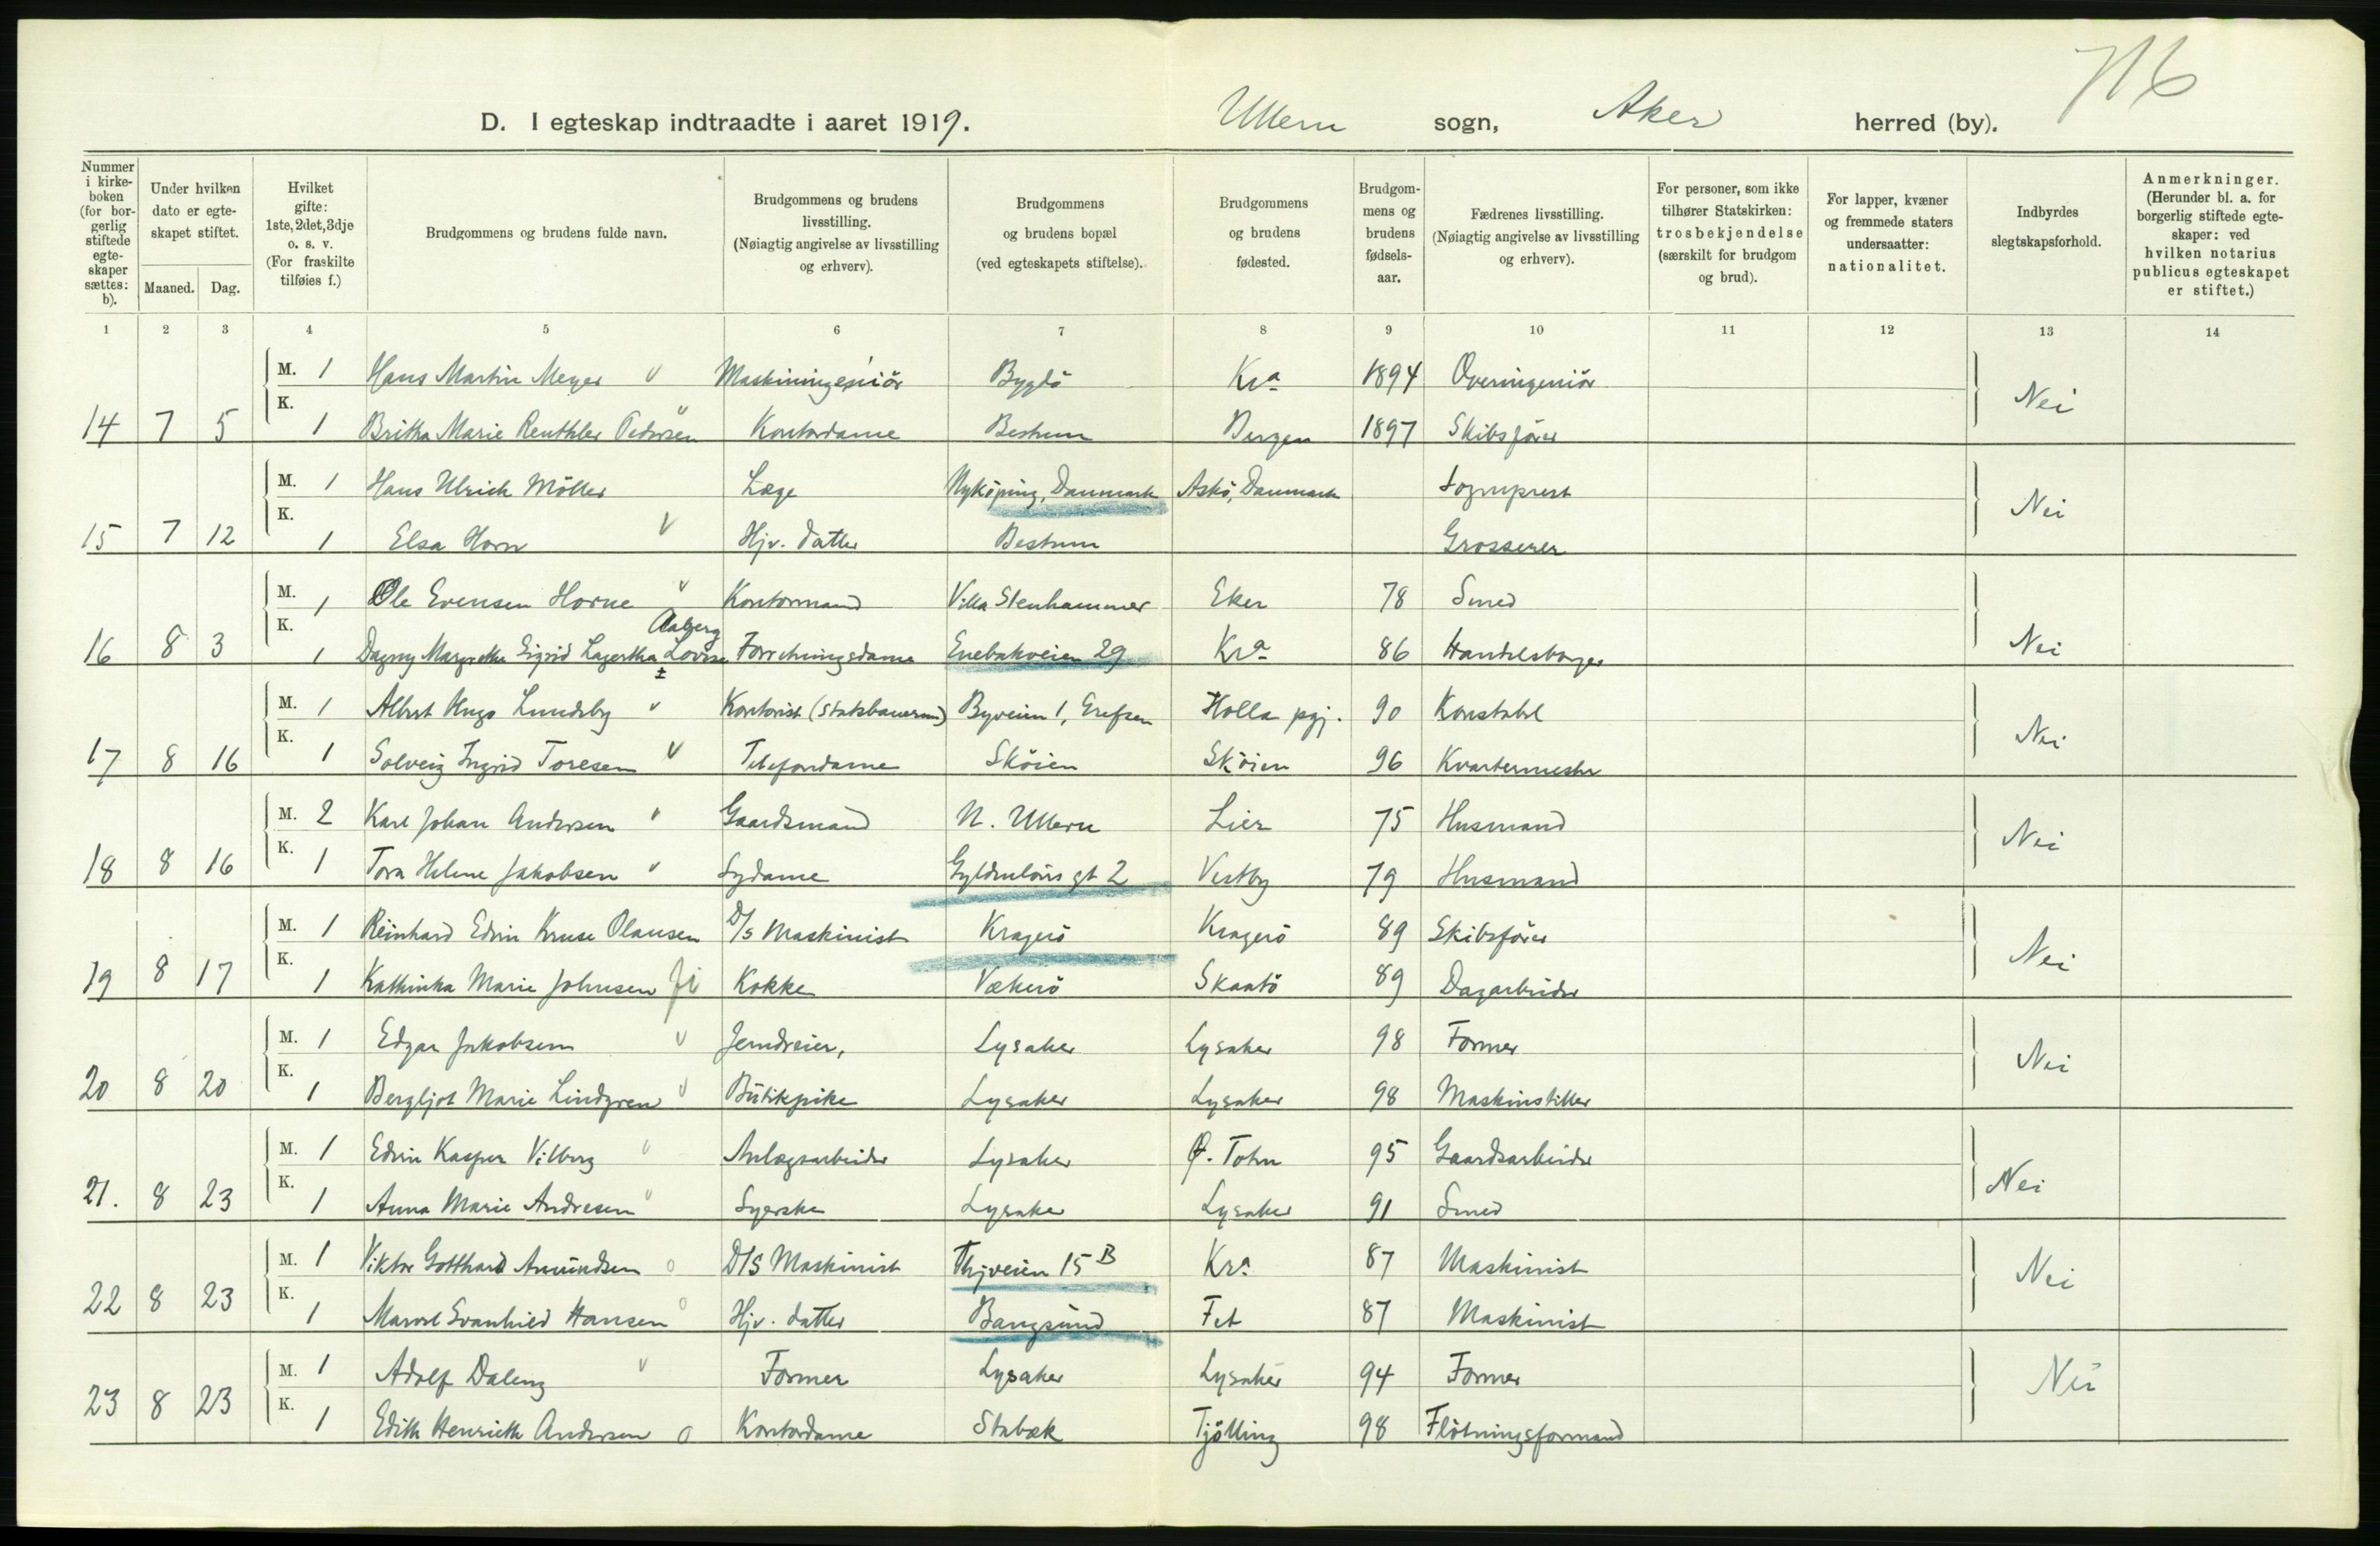 716
D. I egteskap indtraadte i aaret 1919. Ullern sogn, Aker herred (by).
Nummer i kirkeboken (for borgerlig stiftede egteskaper sættes: b).
Under hvilken dato er egteskapet stiftet.
Maaned. Dag.
Hvilket gifte: 1ste, 2det, 3dje o. s. v. (For fraskilte tilføies f.)
Brudgommens og brudens fulde navn.
Brudgommens og brudens livsstilling. (Nøiagtig angivelse av livsstilling og erhverv).
Brudgommens og brudens bopæl (ved egteskapets stiftelse).
Brudgommens og brudens fødested.
Brudgommens og brudens fødselsaar.
Fædrenes livsstilling. (Nøiagtig angivelse av livsstilling og erhverv).
For personer, som ikke tilhører Statskirken: trosbekjendelse (særskilt for brudgom og brud).
For lapper, kvæner og fremmede staters undersaatter: nationalitet.
Indbyrdes slegtskapsforhold.
Anmerkninger. (Herunder bl. a. for borgerlig stiftede egteskaper: ved hvilken notarius publicus egteskapet er stiftet.)
1 2 3 4 5 6 7 8 9 10 11 12 13 14
M. 1 Hans Martin Meyer Maskiningeniör Bygdö Kra 1894 Overingeniör
14 7 5 K. 1 Britha Marie Renthler Pedersen Kontordame Bestum Bergen 1897 Skibsförer Nei
M. 1 Hans Ulrich Möller Læge Nyköping, Danmark Askö, Danmark Sogneprest
15 7 12 K. 1 Elsa Horn Hjv. datter Bestum Grosserer Nei
M. 1 Ole Evensen Horne Kontormand Villa Stenhammer Eker 78 Smed
Aaberg
16 8 3 K. 1 Dagny Margrethe Sigrid Lagertha Lovise Forretningsdame Enebakveien 29 Kra 86 Handelsborger Nei
M. 1 Albert Hugo Lundsby Kontorist (Statsbanerne) Byveien 1, Grefsen Holla pgj. 90 Konstabel
17 8 16 K. 1 Solveig Ingrid Toresen Telefondame Sköien Sköien 96 Kvartermester Nei
M. 2 Karl Johan Andersen Gaardsmand N. Ullern Lier 75 Husmand
18 8 16 K. 1 Tora Helene Jakobsen Sydame Gyldenlöves gt 2 Vestby 79 Husmand Nei
M. 1 Reinhard Edvin Kruse Olausen D/S Maskinist Kragerö Kragerö 89 Skibsförer
19 8 17 K. 1 Kathinka Marie Johnsen Kokke Vækerö Skaatö 89 Dagarbeider Nei
M. 1 Edgar Jakobsen Jerndreier, Lysaker Lysaker 98 Former
20 8 20 K. 1 Bergljot Marie Lindgren Butikpike Lysaker Lysaker 98 Maskinstiller Nei
M. 1 Edvin Kasper Vilberg Anlægsarbeider Lysaker Ø. Toten 95 Gaardsarbeider
21. 8 23 K. 1 Anna Marie Andresen Syerske Lysaker Lysaker 91 Smed Nei
M. 1 Viktor Gotthard Amundsen D/S Maskinist 15 B Kra 87 Maskinist
22 8 23 K. 1 Svanhild Hansen Hjv. datter Bangsund Fet 87 Maskinist Nei
M. 1 Adolf Daleng Former Lysaker Lysaker 94 Former
23 8 23 K. 1 Edith Henriette Andersen Kontordame Stabæk Tjölling 98 Flötningsformand Nei